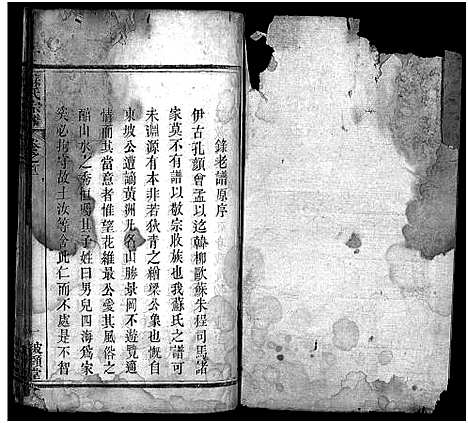 錄老譜原序
伊古孔顏曾孟以迄韓柳歐蘇朱程司馬諸
家莫不有譜以敬宗收族也我蘇氏之譜可
未淵源有本非若狄青之繪梁公象也慨自
東坡公遭謫黃洲凡名山勝景罔不遊覽適
其當意者惟望花維最公愛其風俗之
酷山水之秀但囑其子姓曰男兒四海為家
奚必拘守故土汝等舍此仁而不處是不智
氏宗譜
卷之首
一
堂